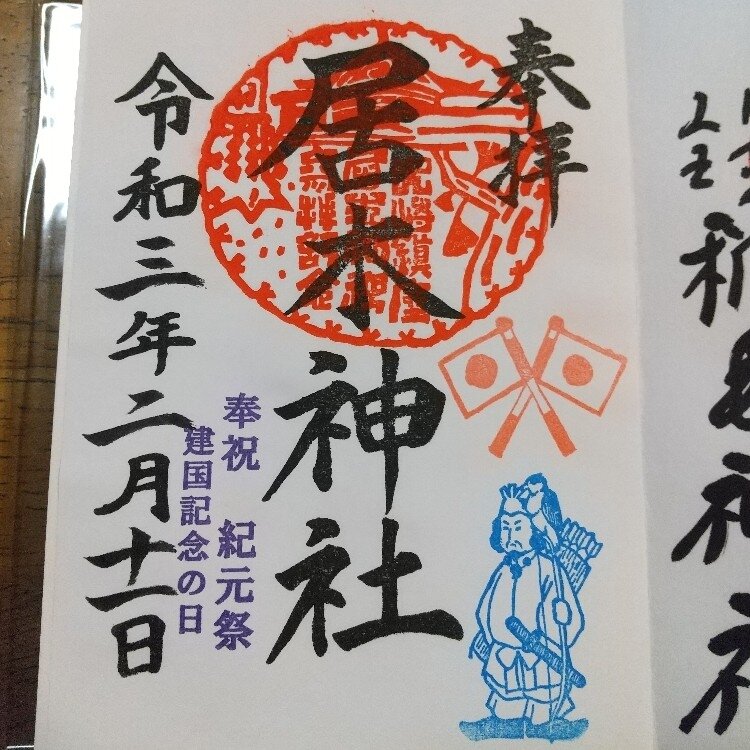 奉拝
居木神社
奉祝 紀元祭
建国記念の日
令和三年二月十一日
神社